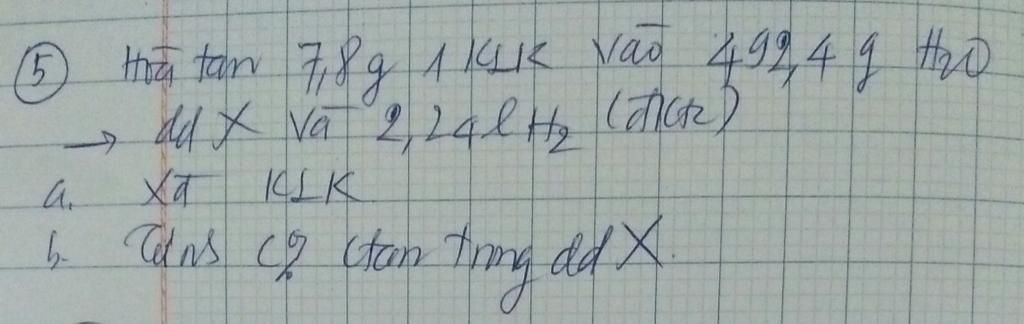 ⑤ Hoà tan 7,8g 1 KLK vào 492,4 g H₂O
→ dd X và 2,24 l H₂ (đktc)
a. XĐ KLK
b. C% ctan trong dd X.